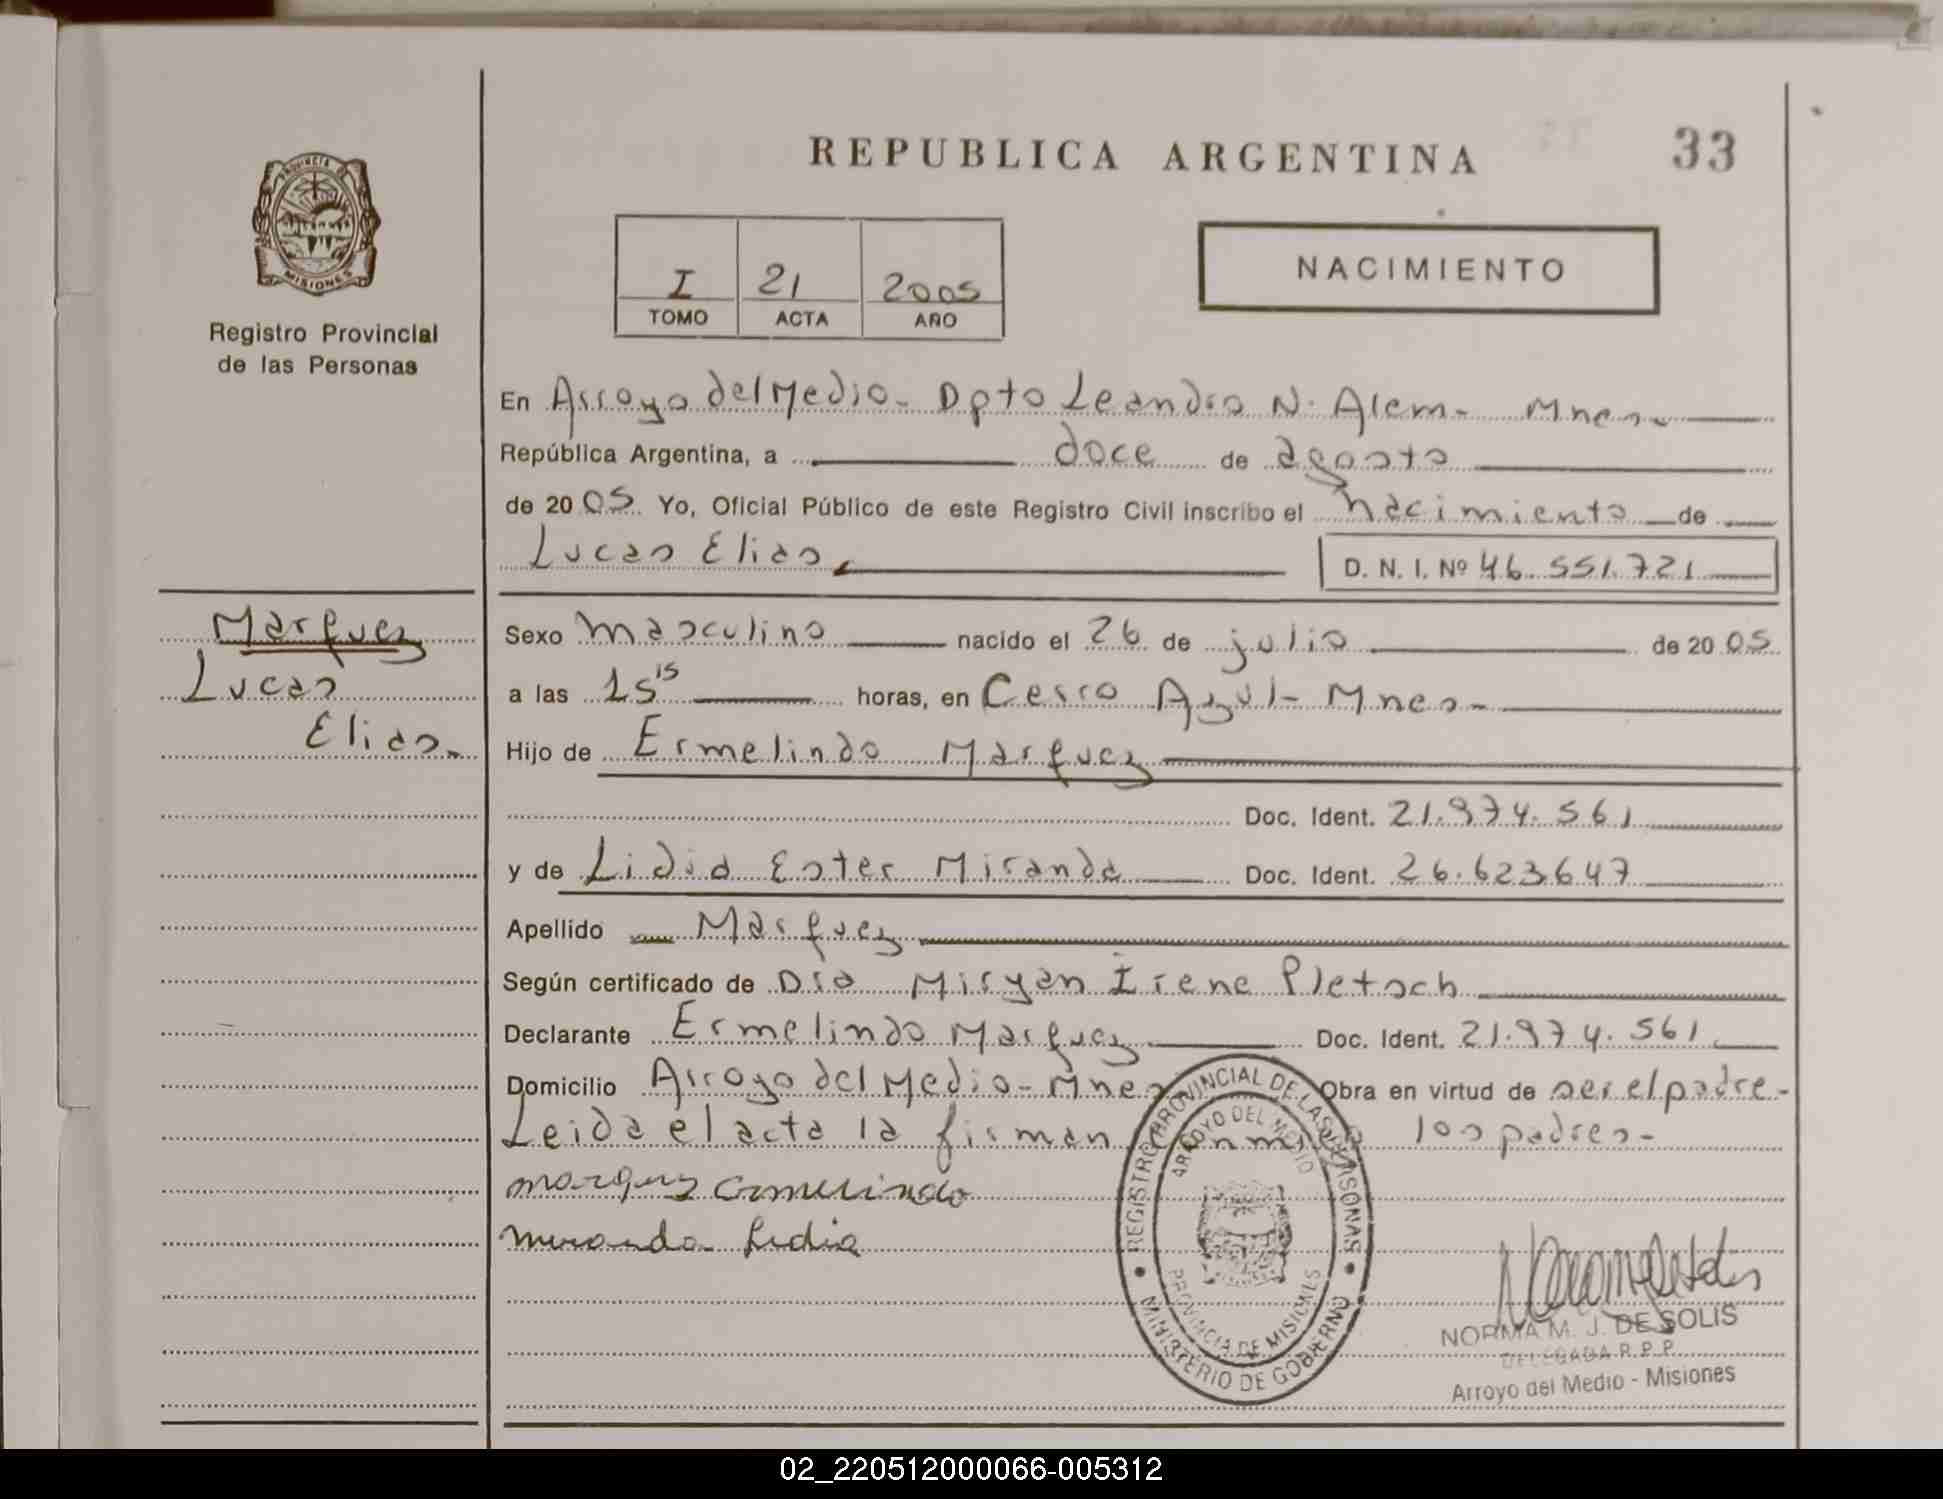 REPUBLICA ARGENTINA
33
PROVINCIA DE
MISIONES
Registro Provincial
de las Personas
I 21 2005
TOMO ACTA AÑO
NACIMIENTO
En Arroyo del Medio - Dpto Leandro N. Alem - Mnes.
República Argentina, a doce de agosto
de 2005 Yo, Oficial Público de este Registro Civil inscribo el nacimiento de
Lucas Elias
D. N. I. Nº 46.551.721
Marquez
Lucas
Elias.
Sexo masculino nacido el 26 de julio de 2005
a las 15 15 horas, en Cerro Azul - Mnes -
Hijo de Ermelindo Marquez
Doc. Ident. 21.974.561
y de Lidia Ester Miranda Doc. Ident. 26.623647
Apellido Marquez
Según certificado de Dra Miryan Irene Pletsch
Declarante Ermelindo Marquez Doc. Ident. 21.974.561
Domicilio Arroyo del Medio - Mnes Obra en virtud de ser el padre -
Leida el acta la firman los padres -
Miranda Lidia
REGISTRO PROVINCIAL DE LAS PERSONAS
ARROYO DEL MEDIO
PROVINCIA DE MISIONES
MINISTERIO DE GOBIERNO
NORMA M. J. DE SOLIS
DELEGADA R.P.P.
Arroyo del Medio - Misiones
02_220512000066-005312